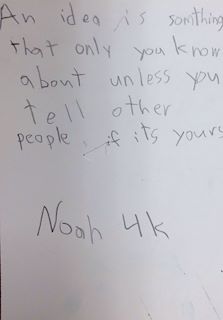 An idea is somthing
that only you know
about unless you
tell other
people, if its yours
Noah 4k